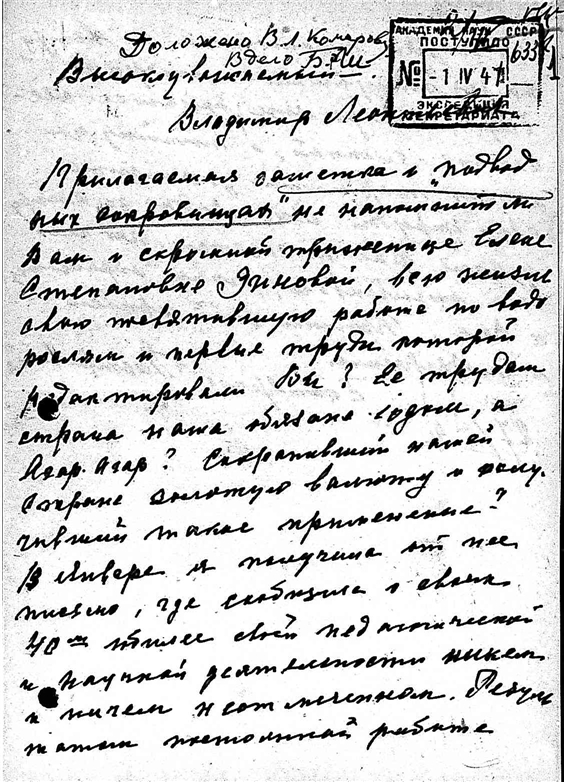 Доложено В.Л. Комарову
В дело
АКАДЕМИЯ НАУК СССР
ПОСТУПИЛО
№ -1 IV 47
633
ЭКСПЕДИЦИЯ
СЕКРЕТАРИАТА
Высокоуважаемый
Владимир Леонтьевич
Прилагаемая заметка о "подвод
ных сокровищах" не напомнит ли
Вам о скромной труженице Елене
Степановне Зиновой, всю жизнь
свою посвятившую работе по водо
рослям и первые труды которой
редактировали Вы? Ее трудам
страна наша обязана иодом, а
Агар-Агар? Сохранивший нашей
Стране золотую валюту и полу-
чивший такое применение?
В январе я получила от нее
письмо, где сообщила о своем
40-летие своей педагогической
и научной деятельности никем
и ничем неотмеченном. Резуль
татом постоянной работы